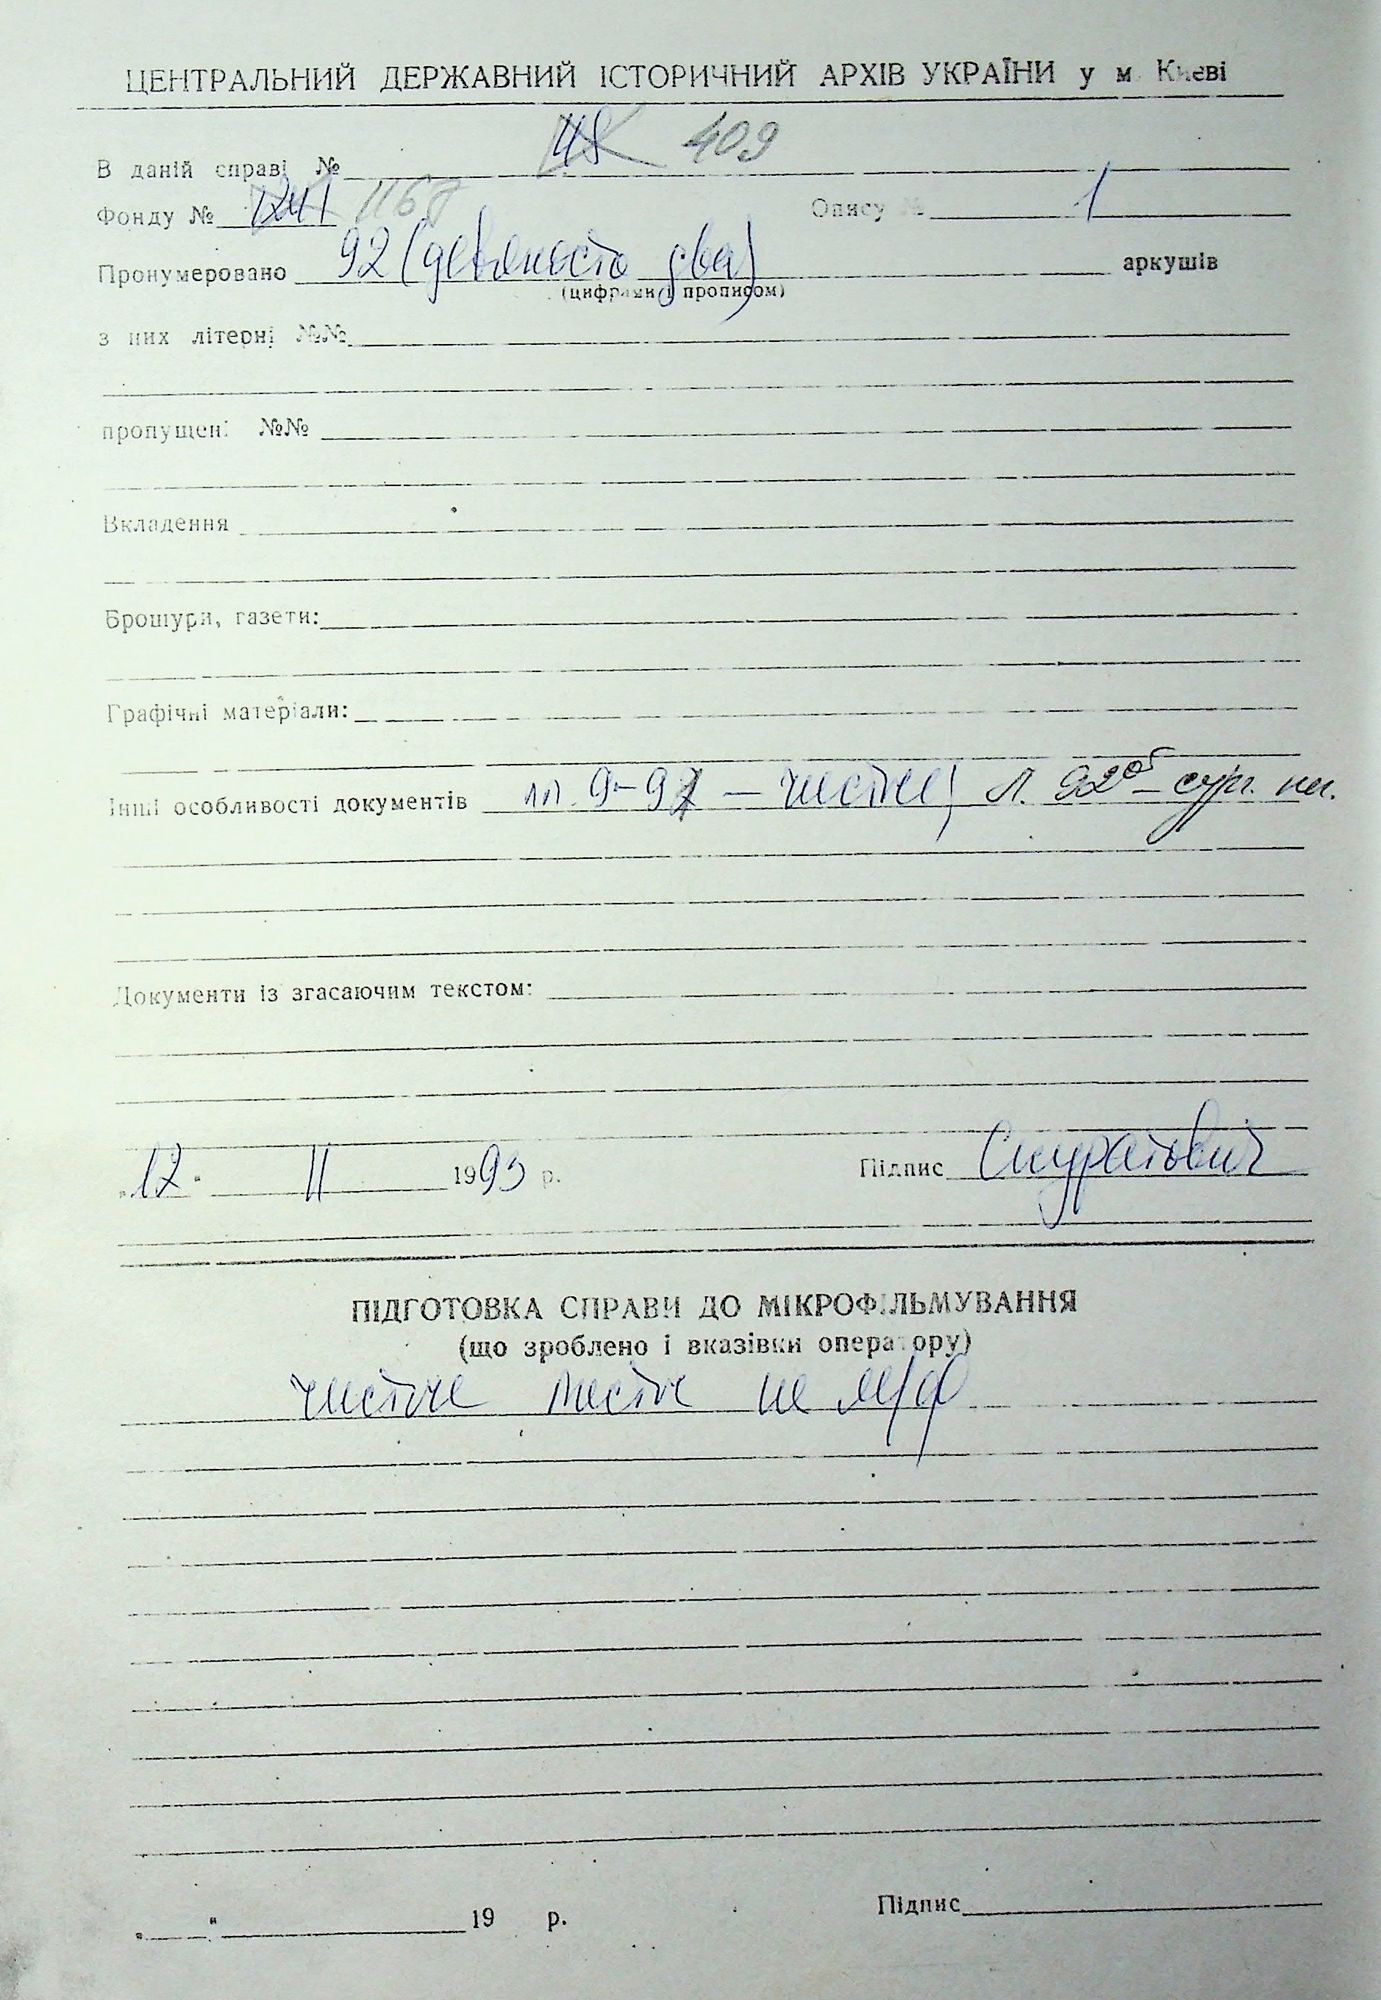 ЦЕНТРАЛЬНИЙ ДЕРЖАВНИЙ ІСТОРИЧНИЙ АРХІВ УКРАЇНИ у м. Києві
В даній справі № 48 409
Фонду № 1241 1167 Опису № 1
Пронумеровано 92 (девяносто два) аркушів
(цифрами і прописом)
з них літерні №№
пропущені №№
Вкладення
Брошури, газети:
Графічні матеріали:
Інші особливості документів лл. 9-91 - чистые, Л. 92об - сург. пл.
Документи із згасаючим текстом:
"17" II 1993 р. Підпис Скуратович
ПІДГОТОВКА СПРАВИ ДО МІКРОФІЛЬМУВАННЯ
(що зроблено і вказівки оператору)
чистые листы не м/ф
" " 19 р. Підпис